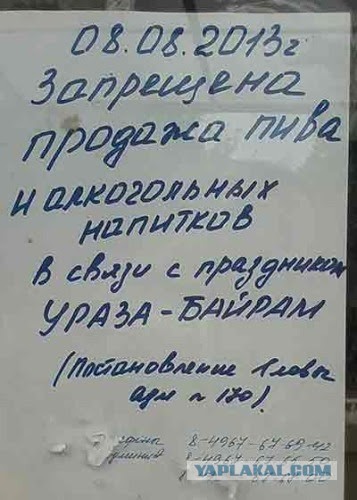 08.08.2013г
Запрещена
продажа пива
и алкогольных
напитков
в связи с праздником
УРАЗА-БАЙРАМ
(Постановление Главы
адм №170).
8-4967-67-69-42
8-4967-67
YAPLAKAL.COM